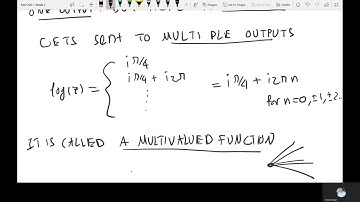 GETS SENT TO MULTIPLE OUTPUTS
log(z) = { iπ/4
iπ/4 + i2π
⋮
= iπ/4 + i2πn
for n=0,±1,±2..
IT IS CALLED A MULTIVALUED FUNCTION